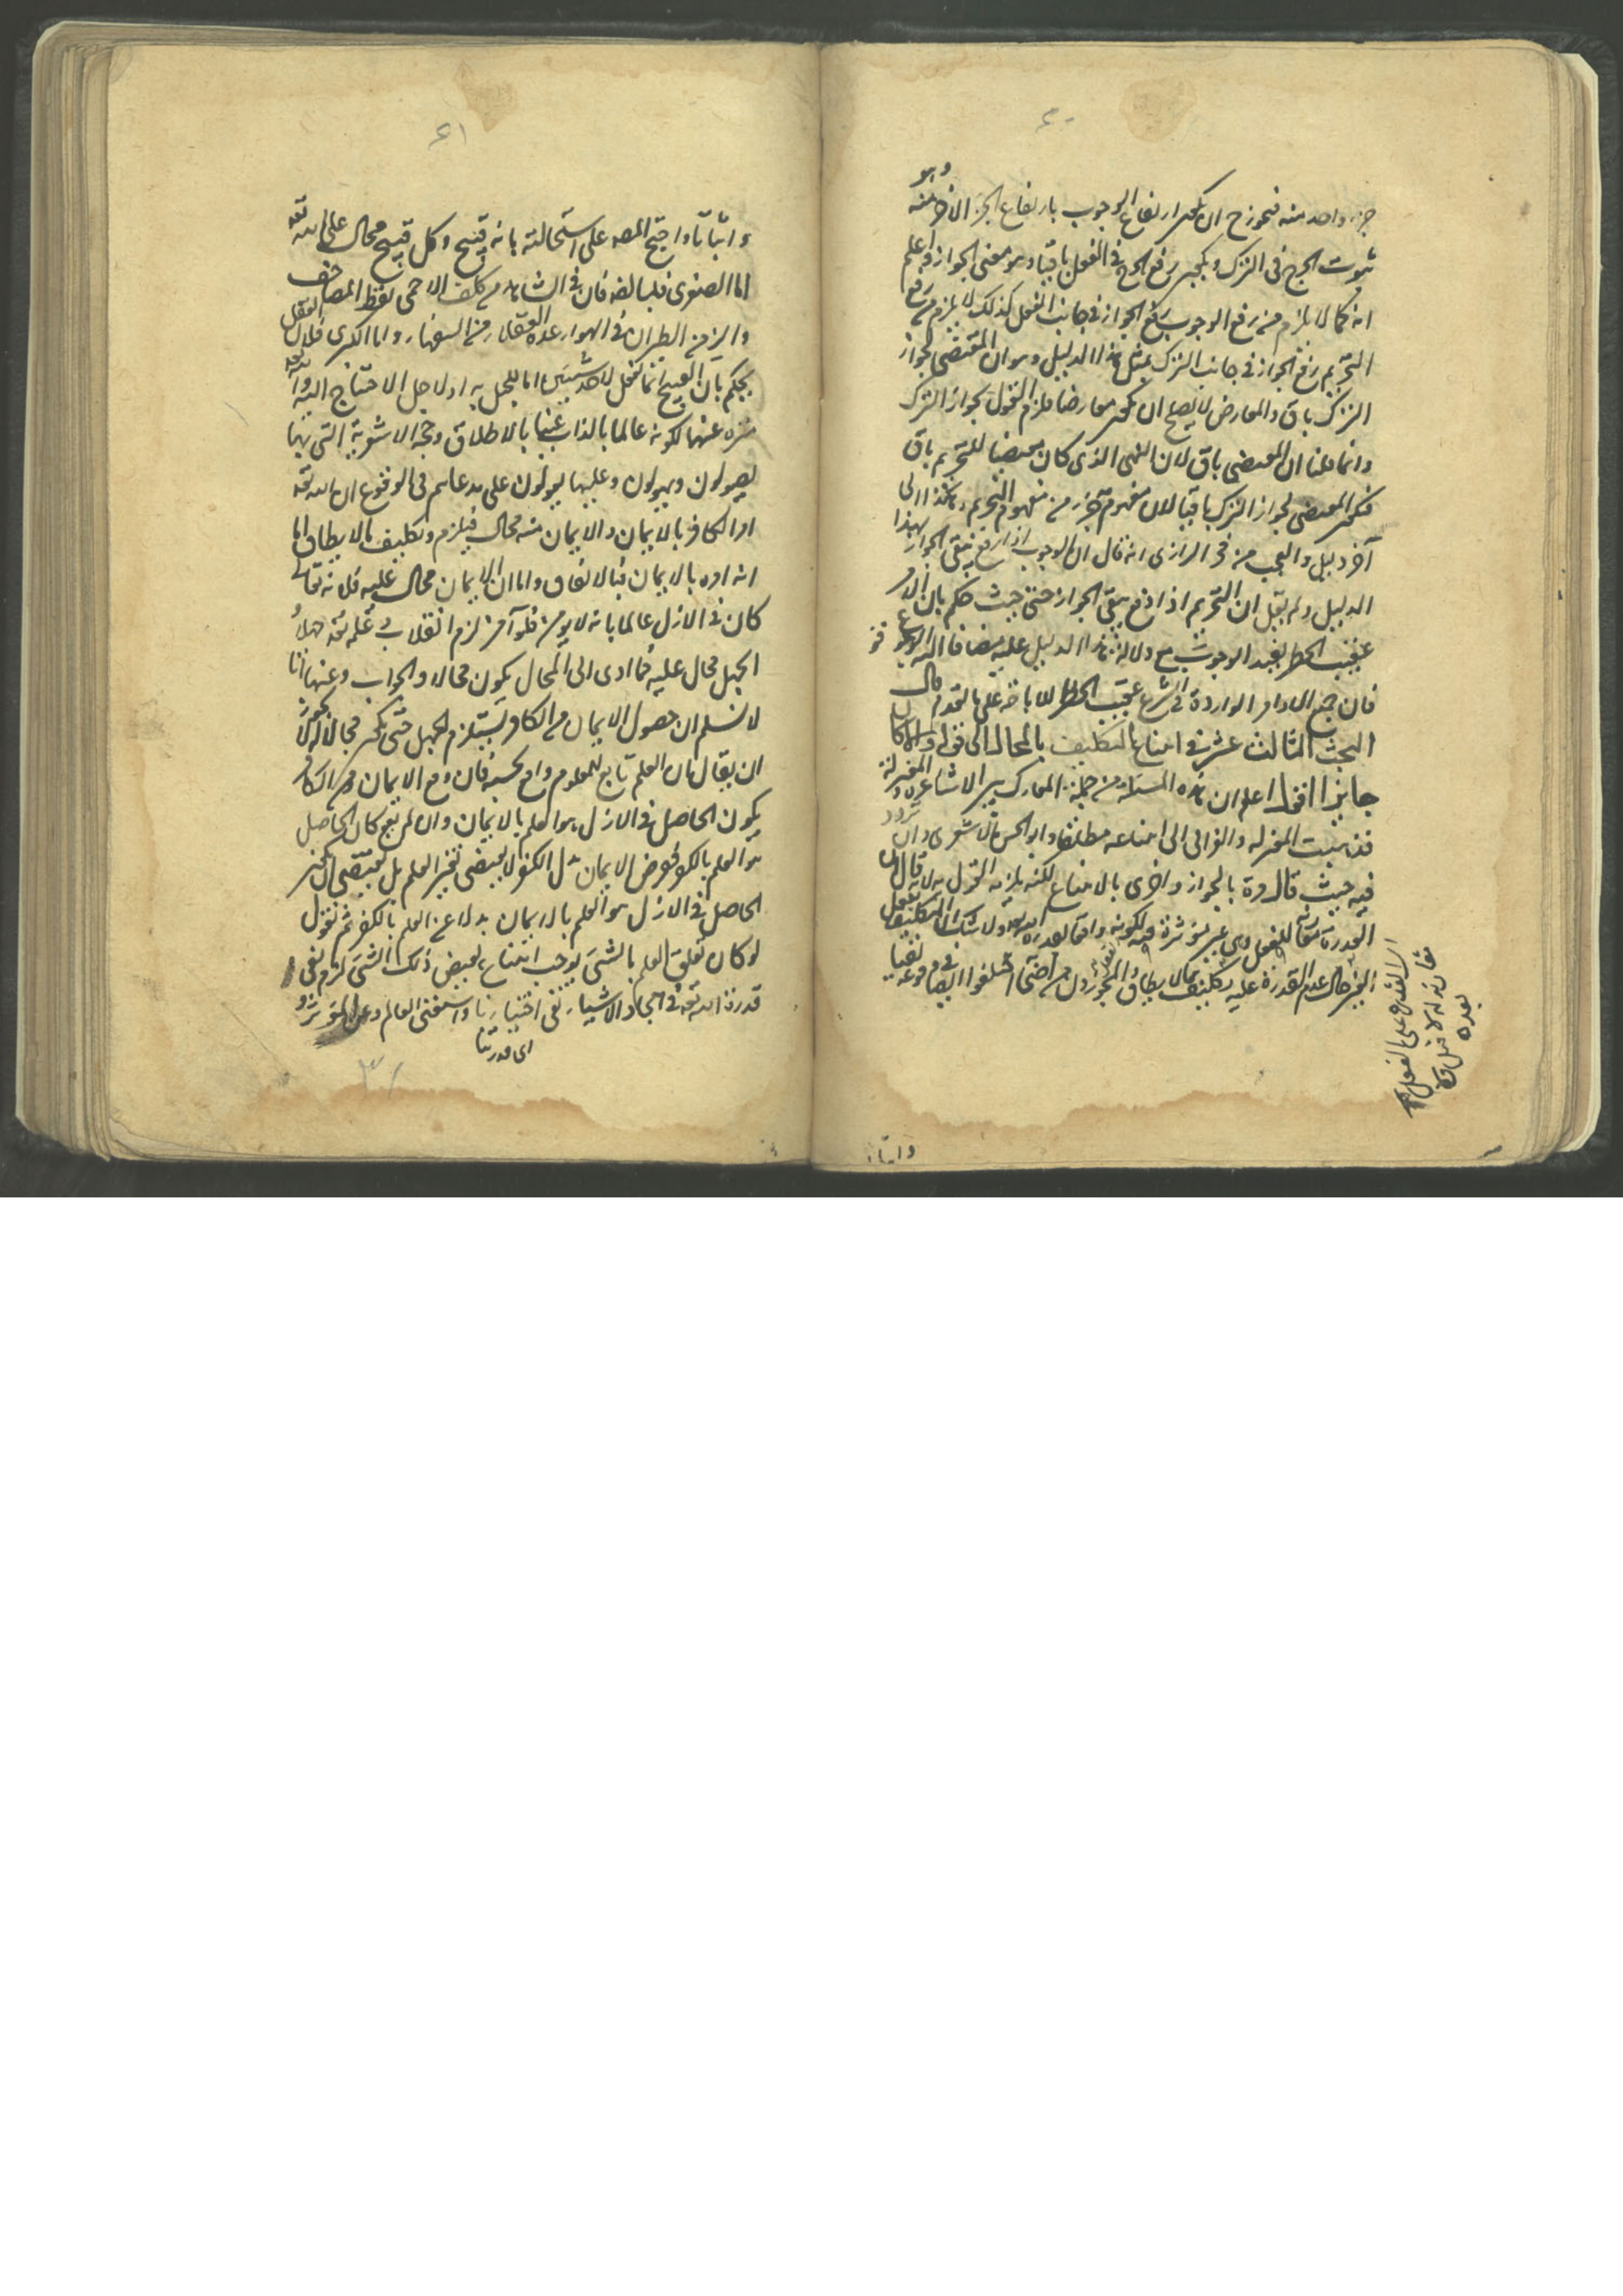 ٦٠
وهو
جزء واحد منه فيجوز ح ان يكون ارتفاع الوجوب بارتفاع الجزء الاخر منه
ثبوت الحرج في الترك ويكون رفع الحرج في الفعل باقيا وهو معنى الجواز واعلم
انه كما لا يلزم من رفع الوجوب رفع الجواز في جانب الفعل كذلك لا يلزم من رفع
التحريم رفع الجواز في جانب الترك بمثل هذا الدليل وهو ان المقتضى لجواز
الترك باق والمعارض لا يصلح ان يكون معارضا فلزم القول بجواز الترك
وانما قلنا ان المقتضى باق لان النهى الذى كان مقتضيا للتحريم باق
فيكون المقتضى لجواز الترك باقيا لان مفهومه جزء من مفهوم التحريم وهكذا الى
آخر دليل والعجب من فخر الرازى انه قال ان الوجوب اذا رفع يبقى الجواز بهذا
الدليل ولم يقل ان التحريم اذا رفع يبقى الجواز حتى حيث حكم بان الامر
عقيب الحظر يفيد الوجوب مع دلالة هذا الدليل عليه مضافا اليه الوقوع
فان جميع الاوامر الواردة في الشرع عقيب الحظر للاباحة على ما تقدم قال
البحث الثالث عشر في امتناع التكليف بالمحال الى قوله والا لكان
جايزا اقول اعلم ان هذه المسئلة من جملة المعارك بين الاشاعرة والمعتزلة
فذهبت المعتزلة والغزالى الى امتناعه مطلقا وابو الحسن الاشعرى وان تردد
فيه حيث قال تارة بالجواز واخرى بالامتناع لكنه يلزمه القول به لانه قال ان
القدرة مع الفعل وهى غير مؤثرة فيه لكونه واقعا بقدرة الله ولا شك ان التكليف بفعل
الغير حال عدم القدرة عليه تكليف بما لا يطاق والمجوزون من اصحابه اختلفوا ايضا في وقوعه نفيا
الا لتقدم على الفعل
مقارنة له لا قبل ولا
بعده
واثباتا
٦١
واثباتا واحتج المصه على استحالته بانه قبيح وكل قبيح محال على الله تعه
اما الصغرى فلما الضه فان في الشاهد من كلف الاعمى نقط المصاحف
والزمن الطيران في الهواء عده العقلاء من السفهاء واما الكبرى فلان العقل
يحكم بان القبيح انما يفعل لاحد شيئين اما للجهل به او لاجل الاحتياج اليه والله تعه
منزه عنهما لكونه عالما بالذات غنيا بالاطلاق وحجة الاشعرية التى بها
يصولون ويهولون وعليها يعولون على مدعاهم في الوقوع ان الله تعه
امر الكافر بالايمان والايمان منه محال فيلزم وتكليف ما لا يطاق اما
انه امره بالايمان فبالاتفاق واما ان الايمان محال عليه فلانه تعالى
كان في الازل عالما بانه لا يؤمن فلو آمن لزم انقلاب علمه تعه جهلا
الجهل محال عليه فما ادى الى المحال يكون محالا والجواب وعنه انا
لا نسلم ان حصول الايمان من الكافر يستلزم الجهل حتى يكون محالا لجواز
ان يقال ان العلم تابع للمعلوم واقع بحسبه فان وقع الايمان من الكافر
يكون الحاصل في الازل هو العلم بالايمان وان لم يقع كان الحاصل
هو العلم بالكفر ففرض الايمان بدل الكفر لا يقتضى تغير العلم بل يقتضى ان يكون
الحاصل في الازل هو العلم بالايمان بدلا عن العلم بالكفر ثم نقول
لو كان تعلق العلم بالشئ يوجب امتناع نقيض ذلك الشئ لزم نفى
قدرة الله تعه في ايجاد الاشياء ونفى اختيارنا واستغنى العالم عن المؤثر
اى قدرتنا